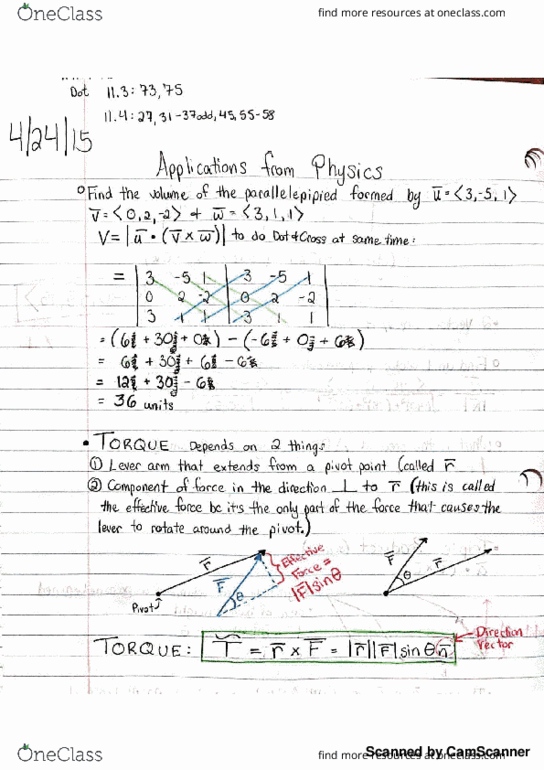 OneClass
find more resources at oneclass.com
Dot 11.3: 73, 75
11.4: 27, 31-37odd, 45, 55-58
4/24/15
Applications from Physics
Find the volume of the parallelepipied formed by u̅ = ⟨3,-5,1⟩
v̅ = ⟨0,2,-2⟩ & w̅ = ⟨3,1,1⟩
V = |u̅ • (v̅ x w̅)| to do Dot & Cross at same time:
= | 3 -5 1 | 3 -5 1 |
0 2 -2 | 0 2 -2
3 1 1 | 3 1 1
= (6i + 30j + 0k) - (-6i + 0j + 6k)
= 6i + 30j + 6i - 6k
= 12i + 30j - 6k
= 36 units
• TORQUE Depends on 2 things
① Lever arm that extends from a pivot point (called r̅
② Component of force in the direction ⊥ to r̅ (this is called
the effective force bc it's the only part of the force that causes the
lever to rotate around the pivot.)
r̅ F̅ θ Pivot
Effective Force = |F̅|sinθ
F̅ θ r̅
TORQUE: T = r̅ x F̅ = |r̅||F̅| sin θ n̅
Direction Vector
OneClass
find more resources at oneclass.com
Scanned by CamScanner